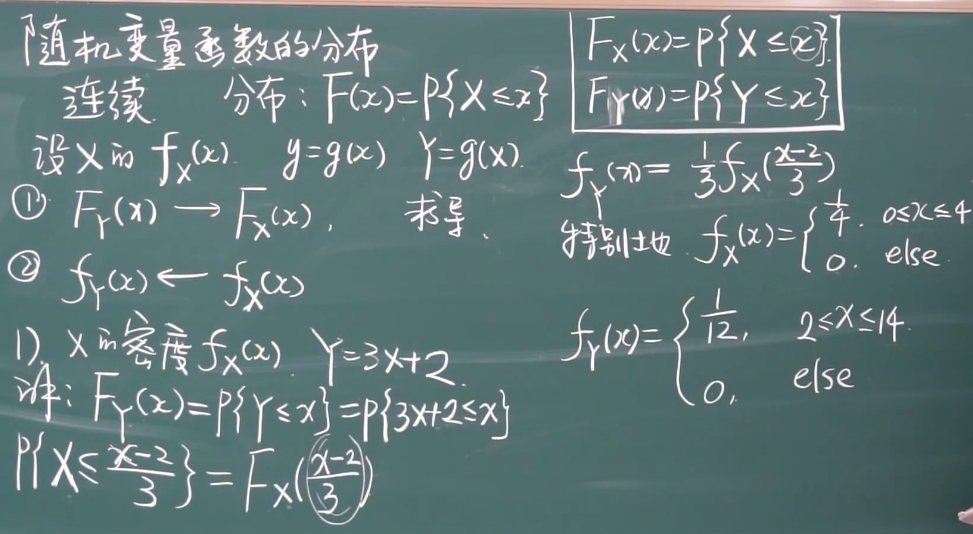 随机变量函数的分布
连续 分布: F(x)=P{X≤x}
设X的 f_X(x) y=g(x) Y=g(X).
① F_Y(x) → F_X(x), 求导.
② f_Y(x) ← f_X(x)
1). X的密度 f_X(x) Y=3X+2.
解: F_Y(x)=P{Y≤x}=P{3X+2≤x}
P{X≤\frac{x-2}{3}}=F_X(\frac{x-2}{3})
F_X(x)=P{X≤x}.
F_Y(x)=P{Y≤x}
f_Y(x)=\frac{1}{3}f_X(\frac{x-2}{3})
特别地. f_X(x)={\frac{1}{4}. 0≤x≤4
0. else.
f_Y(x)={\frac{1}{12}, 2≤x≤14.
0, else